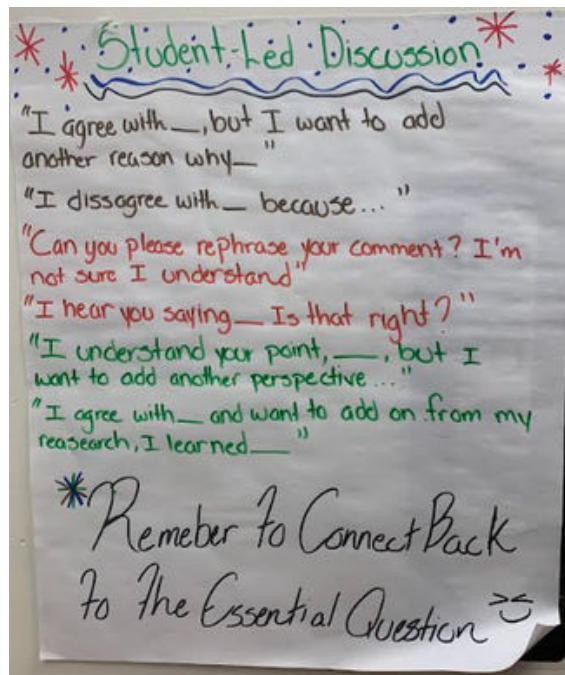 Student-Led Discussion
"I agree with __, but I want to add
another reason why__"
"I dissagree with __ because... "
"Can you please rephrase your comment? I'm
not sure I understand"
"I hear you saying__ Is that right?"
"I understand your point, __, but I
want to add another perspective..."
"I agree with__ and want to add on from my
reasearch, I learned__"
*Remeber to Connect Back
to the Essential Question